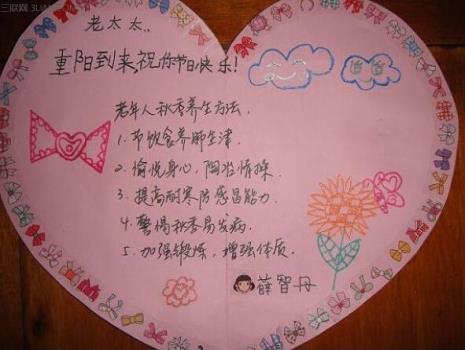 三联网 3LIAN
老太太..
重阳到来,祝你节日快乐!
老年人秋季养生方法.
1.节饮食养肺生津
2.愉悦身心,陶冶情操
3.提高耐寒防感冒能力
4.警惕秋季易发病.
5.加强锻炼,增强体质
薛智丹